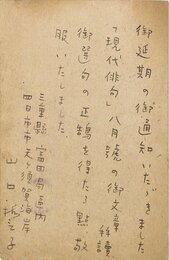 御延期の御通知いたゞきました
「現代俳句」八月號の御文章拜讀
御選句の正鵠を得たる點敬
服いたしました。
三重縣富田局區内
四日市市天ヶ須賀海岸
山口誓子